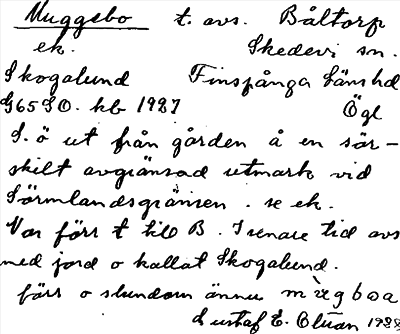 Muggebo t. avs. Båltorp
ek. Skedevi sn.
Skogalund Finspånga läns hd
G65SO. kb 1927 Ögl
S. ö ut från gården å en sär-
skilt avgränsad utmark vid
Sörmlandsgränsen. se ek.
Var förr t till B. I senare tid avs
med jord o kallat Skogalund.
förr o stundom ännu
Gustaf E. 1928